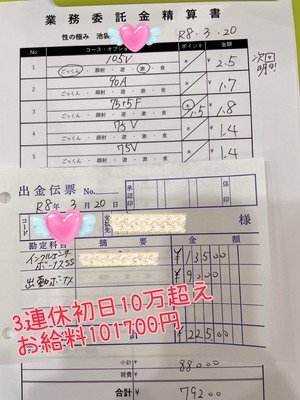 業務委託金精算書
性の極み 池袋
R8.3.20
No
コース・オプション
ポイント
金額
1
105V
ごっくん・顔射・遊・激・食
¥2.5
2
90A
ごっくん・顔射・遊・激・食
¥1.7
3
75+5F
ごっくん・顔射・遊・激・食
1.5
¥1.8
4
75V
ごっくん・顔射・遊・激・食
¥1.4
5
75V
ごっくん・顔射・遊・激・食
¥1.4
出金伝票 No.
承認印
係印
R8年3月20日
コード
支払先
様
勘定科目
摘要
金額
ボーナスSS
¥13500
出勤ボーナス
¥9000
計
¥22500
3連休初日10万超え
お給料101700円
小計
88000
雑費
合計
¥
79200